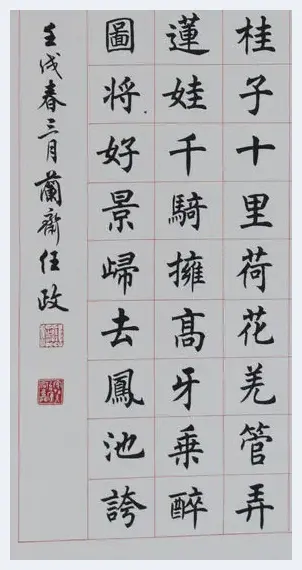 桂子十里荷花羌管弄
蓮娃千騎擁高牙乗醉
圖将好景歸去鳳池誇
壬戌春三月蘭齋任政